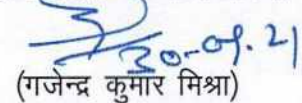 30-09-21
(गजेन्द्र कुमार मिश्रा)